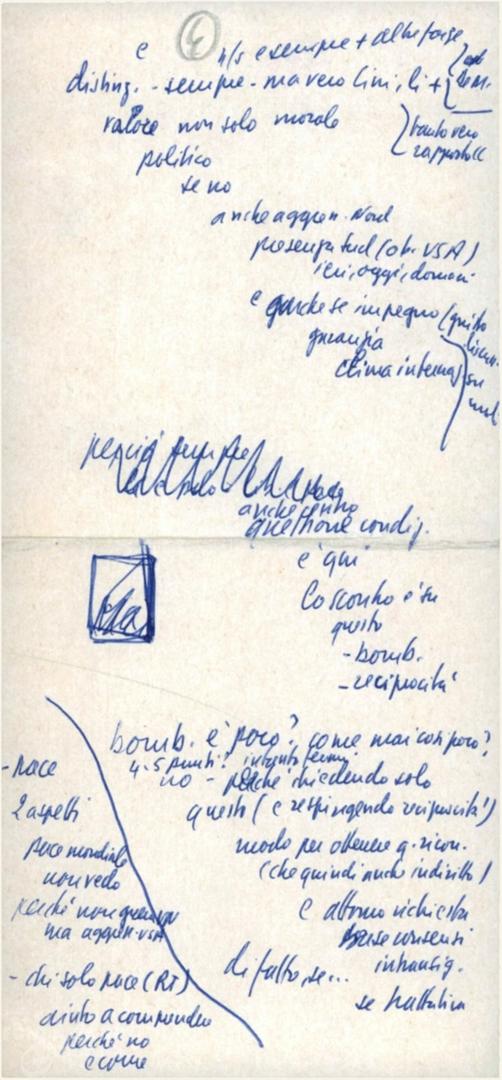 4
e n/s e sempre + alle forze
disting. - sempre - ma vero limi, li +
valore non solo morale
tanto vero
rapporto cc
politico
se no
anche aggress. Nord
presenza sud (ob. USA)
ieri, oggi, domani
e anche se impegno (quito
garanzia
clima internaz
su
sud
perciò sempre
anche centro
questione condiz.
è qui
lo scontro è su
questo
- bomb.
- reciprocità
bomb. è poco? come mai così poco?
4-5 punti! intanto fermi
no - perché chiedendo solo
questo (e respingendo reciprocità)
modo per ottenere q. ricon.
(che quindi anche indiretto)
e attorno richiesta
base consensi
intransig.
di fatto, se...
se trattativa
- pace
2 aspetti
pace mondiale
non vedo
perché non guerra
ma aggress. USA
- chi solo pace (RT)
aiuto a comprendere
perché no
e come